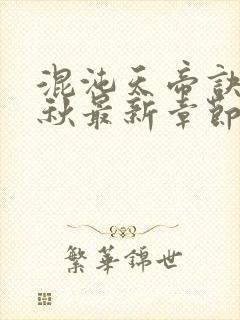 混沌天帝訣
秋最新章節
繁華錦世